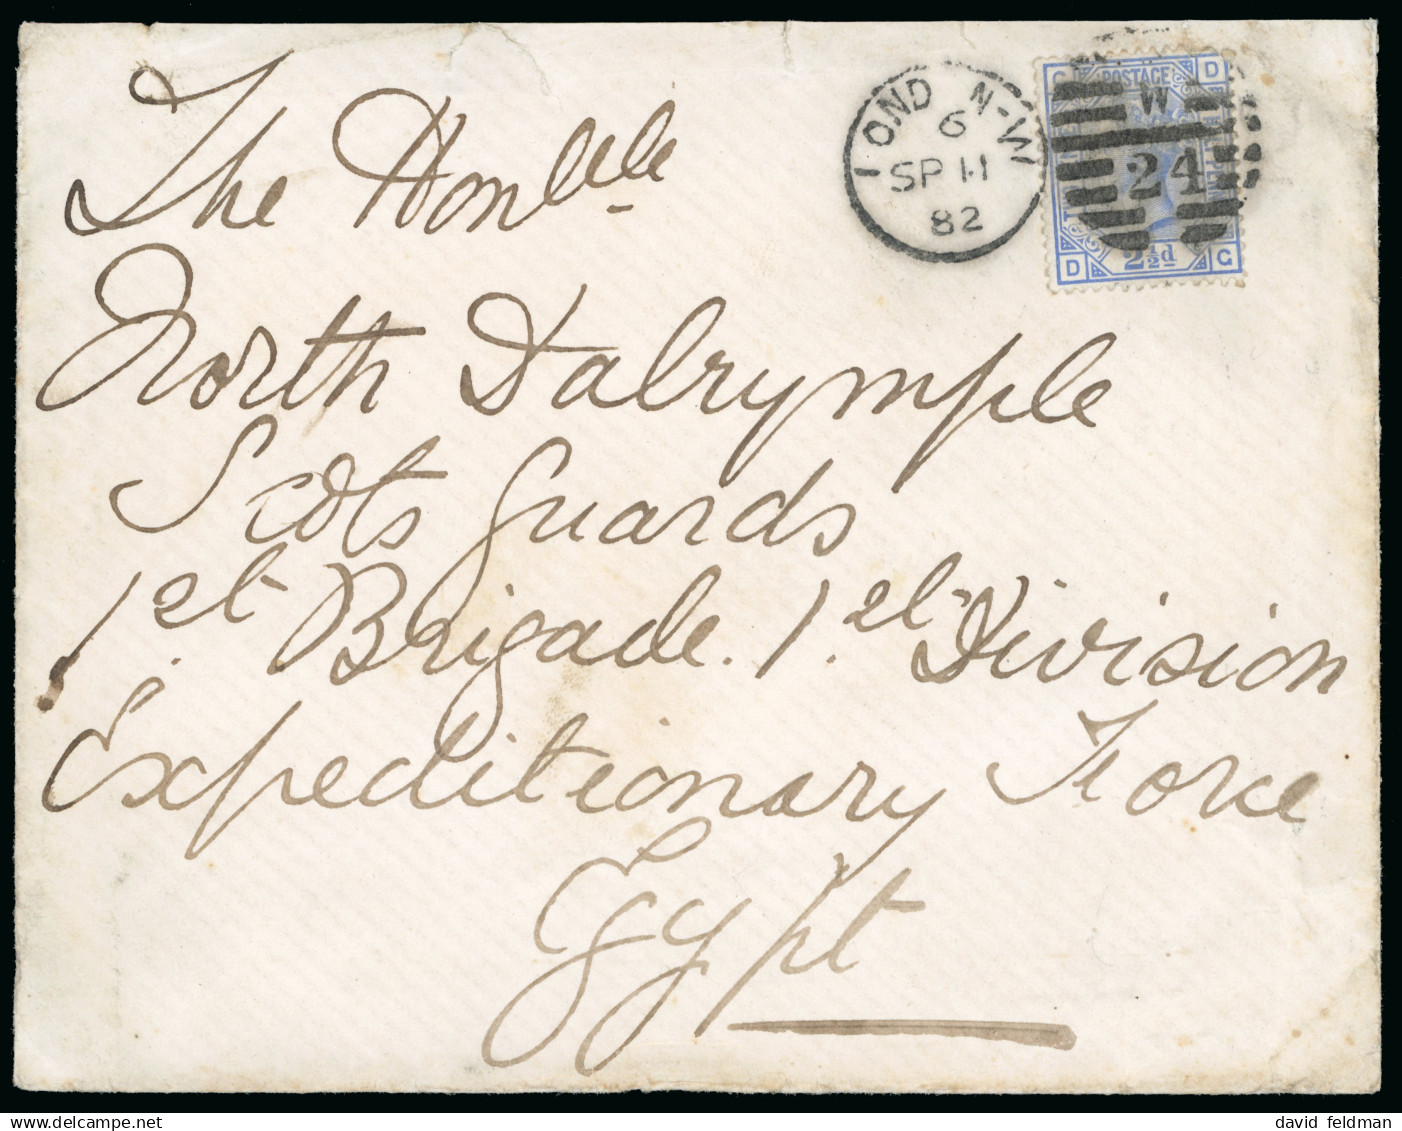 LOND N-W
6
SP 11
82
G POSTAGE D
W
24
D 2½d G
The Honble
North Dalrymple
Scots Guards
1st. Brigade. 1st. Division
Expeditionary Force
Egypt
www.delcampe.net
david feldman